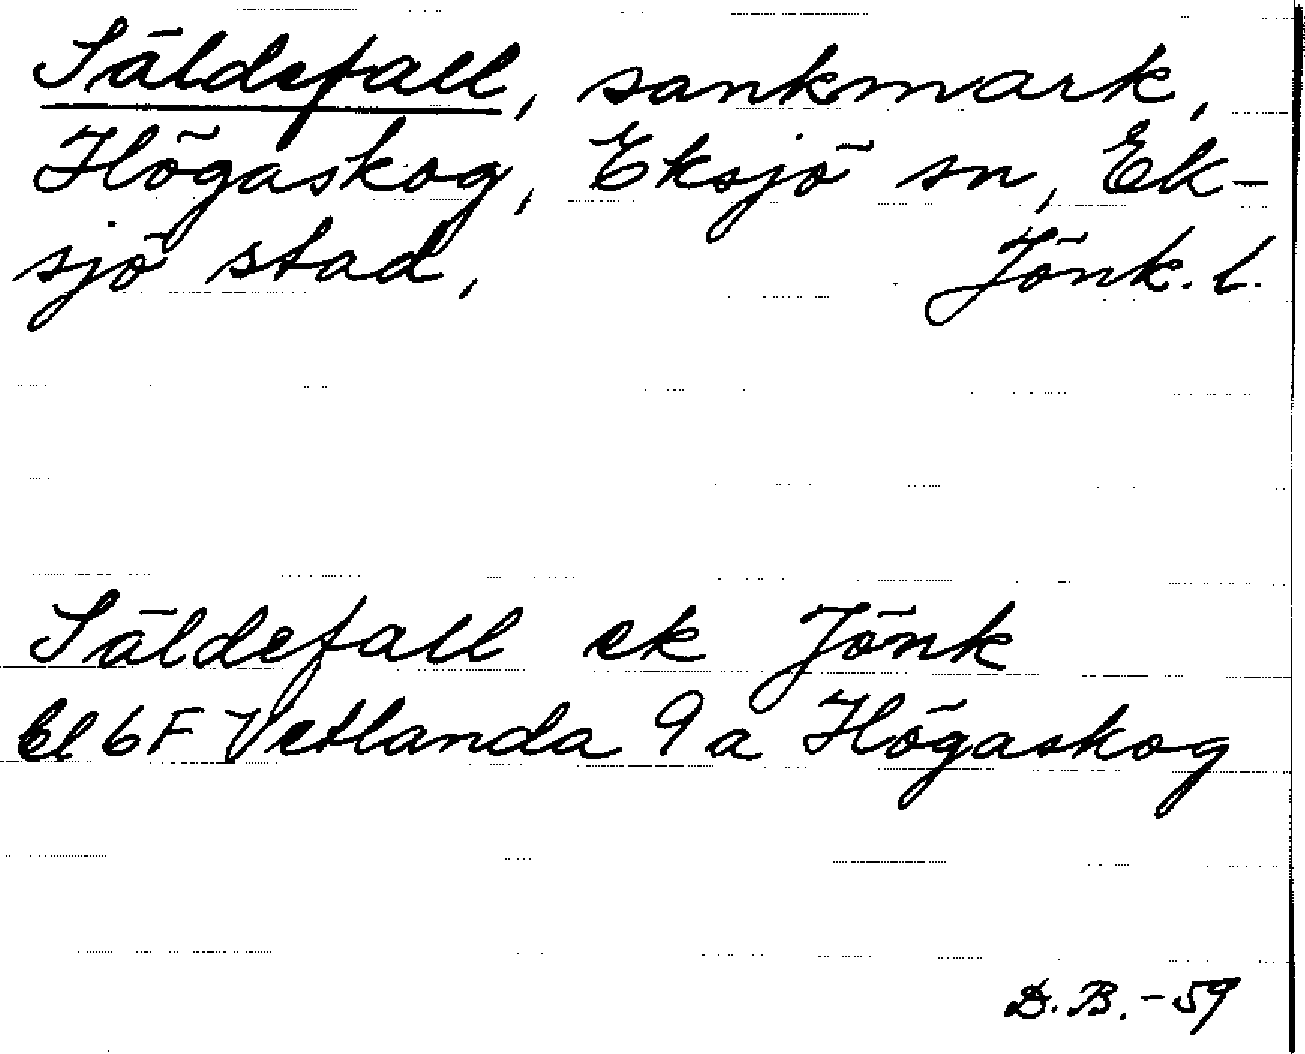 Säldefall, sankmark,
Högaskog, Eksjö sn, Ek-
sjö stad, Jönk. l.
Säldefall ek Jönk
Bl 6F Vetlanda 9a Högaskog
D.B. -59